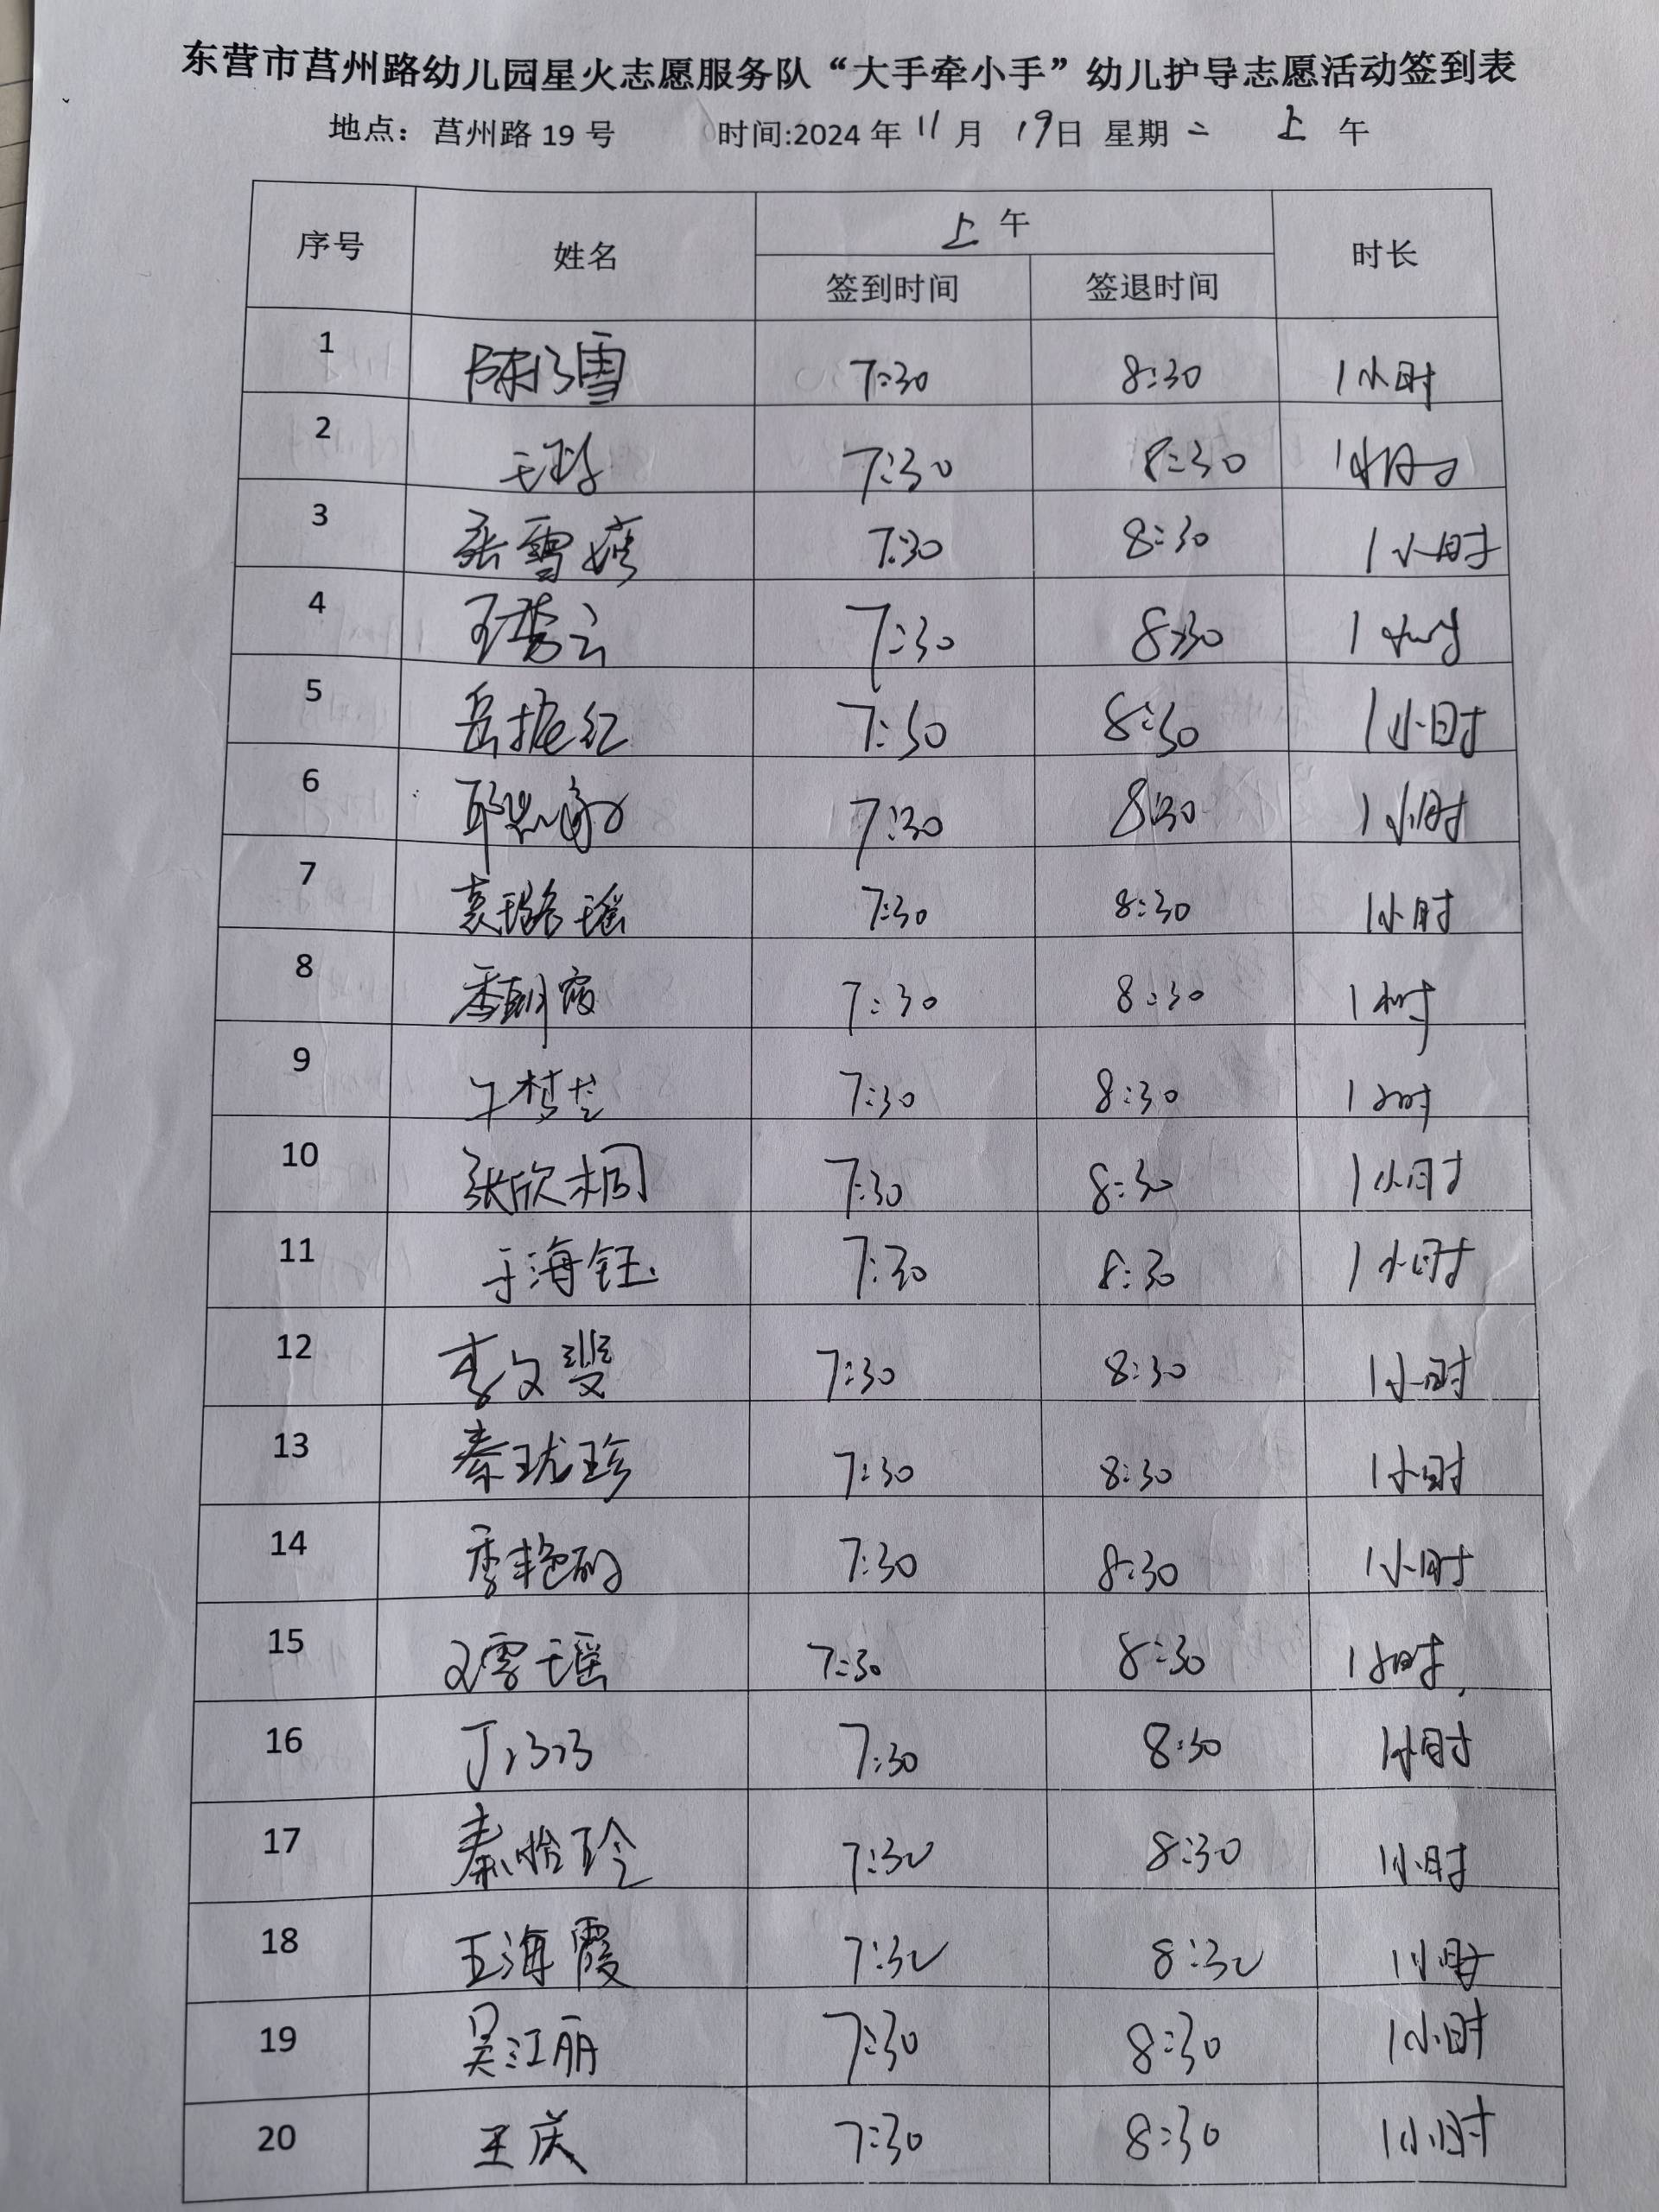 东营市莒州路幼儿园星火志愿服务队“大手牵小手”幼儿护导志愿活动签到表
地点：莒州路 19 号 时间:2024 年 11 月 19 日 星期 二 上 午
序号 姓名 上 午 时长
签到时间 签退时间
1 陈巧雪 7:30 8:30 1小时
2 7:30 8:30 1小时
3 张雪婧 7:30 8:30 1小时
4 王秀云 7:30 8:30 1小时
5 岳振红 7:30 8:30 1小时
6 7:30 8:30 1小时
7 袁璐瑶 7:30 8:30 1小时
8 季朝霞 7:30 8:30 1小时
9 7:30 8:30 1小时
10 张欣桐 7:30 8:30 1小时
11 于海钰 7:30 8:30 1小时
12 李文斐 7:30 8:30 1小时
13 秦珑珍 7:30 8:30 1小时
14 李艳丽 7:30 8:30 1小时
15 雪瑶 7:30 8:30 1小时
16 丁巧巧 7:30 8:30 1小时
17 秦怡玲 7:30 8:30 1小时
18 王海霞 7:30 8:30 1小时
19 吴江丽 7:30 8:30 1小时
20 王庆 7:30 8:30 1小时